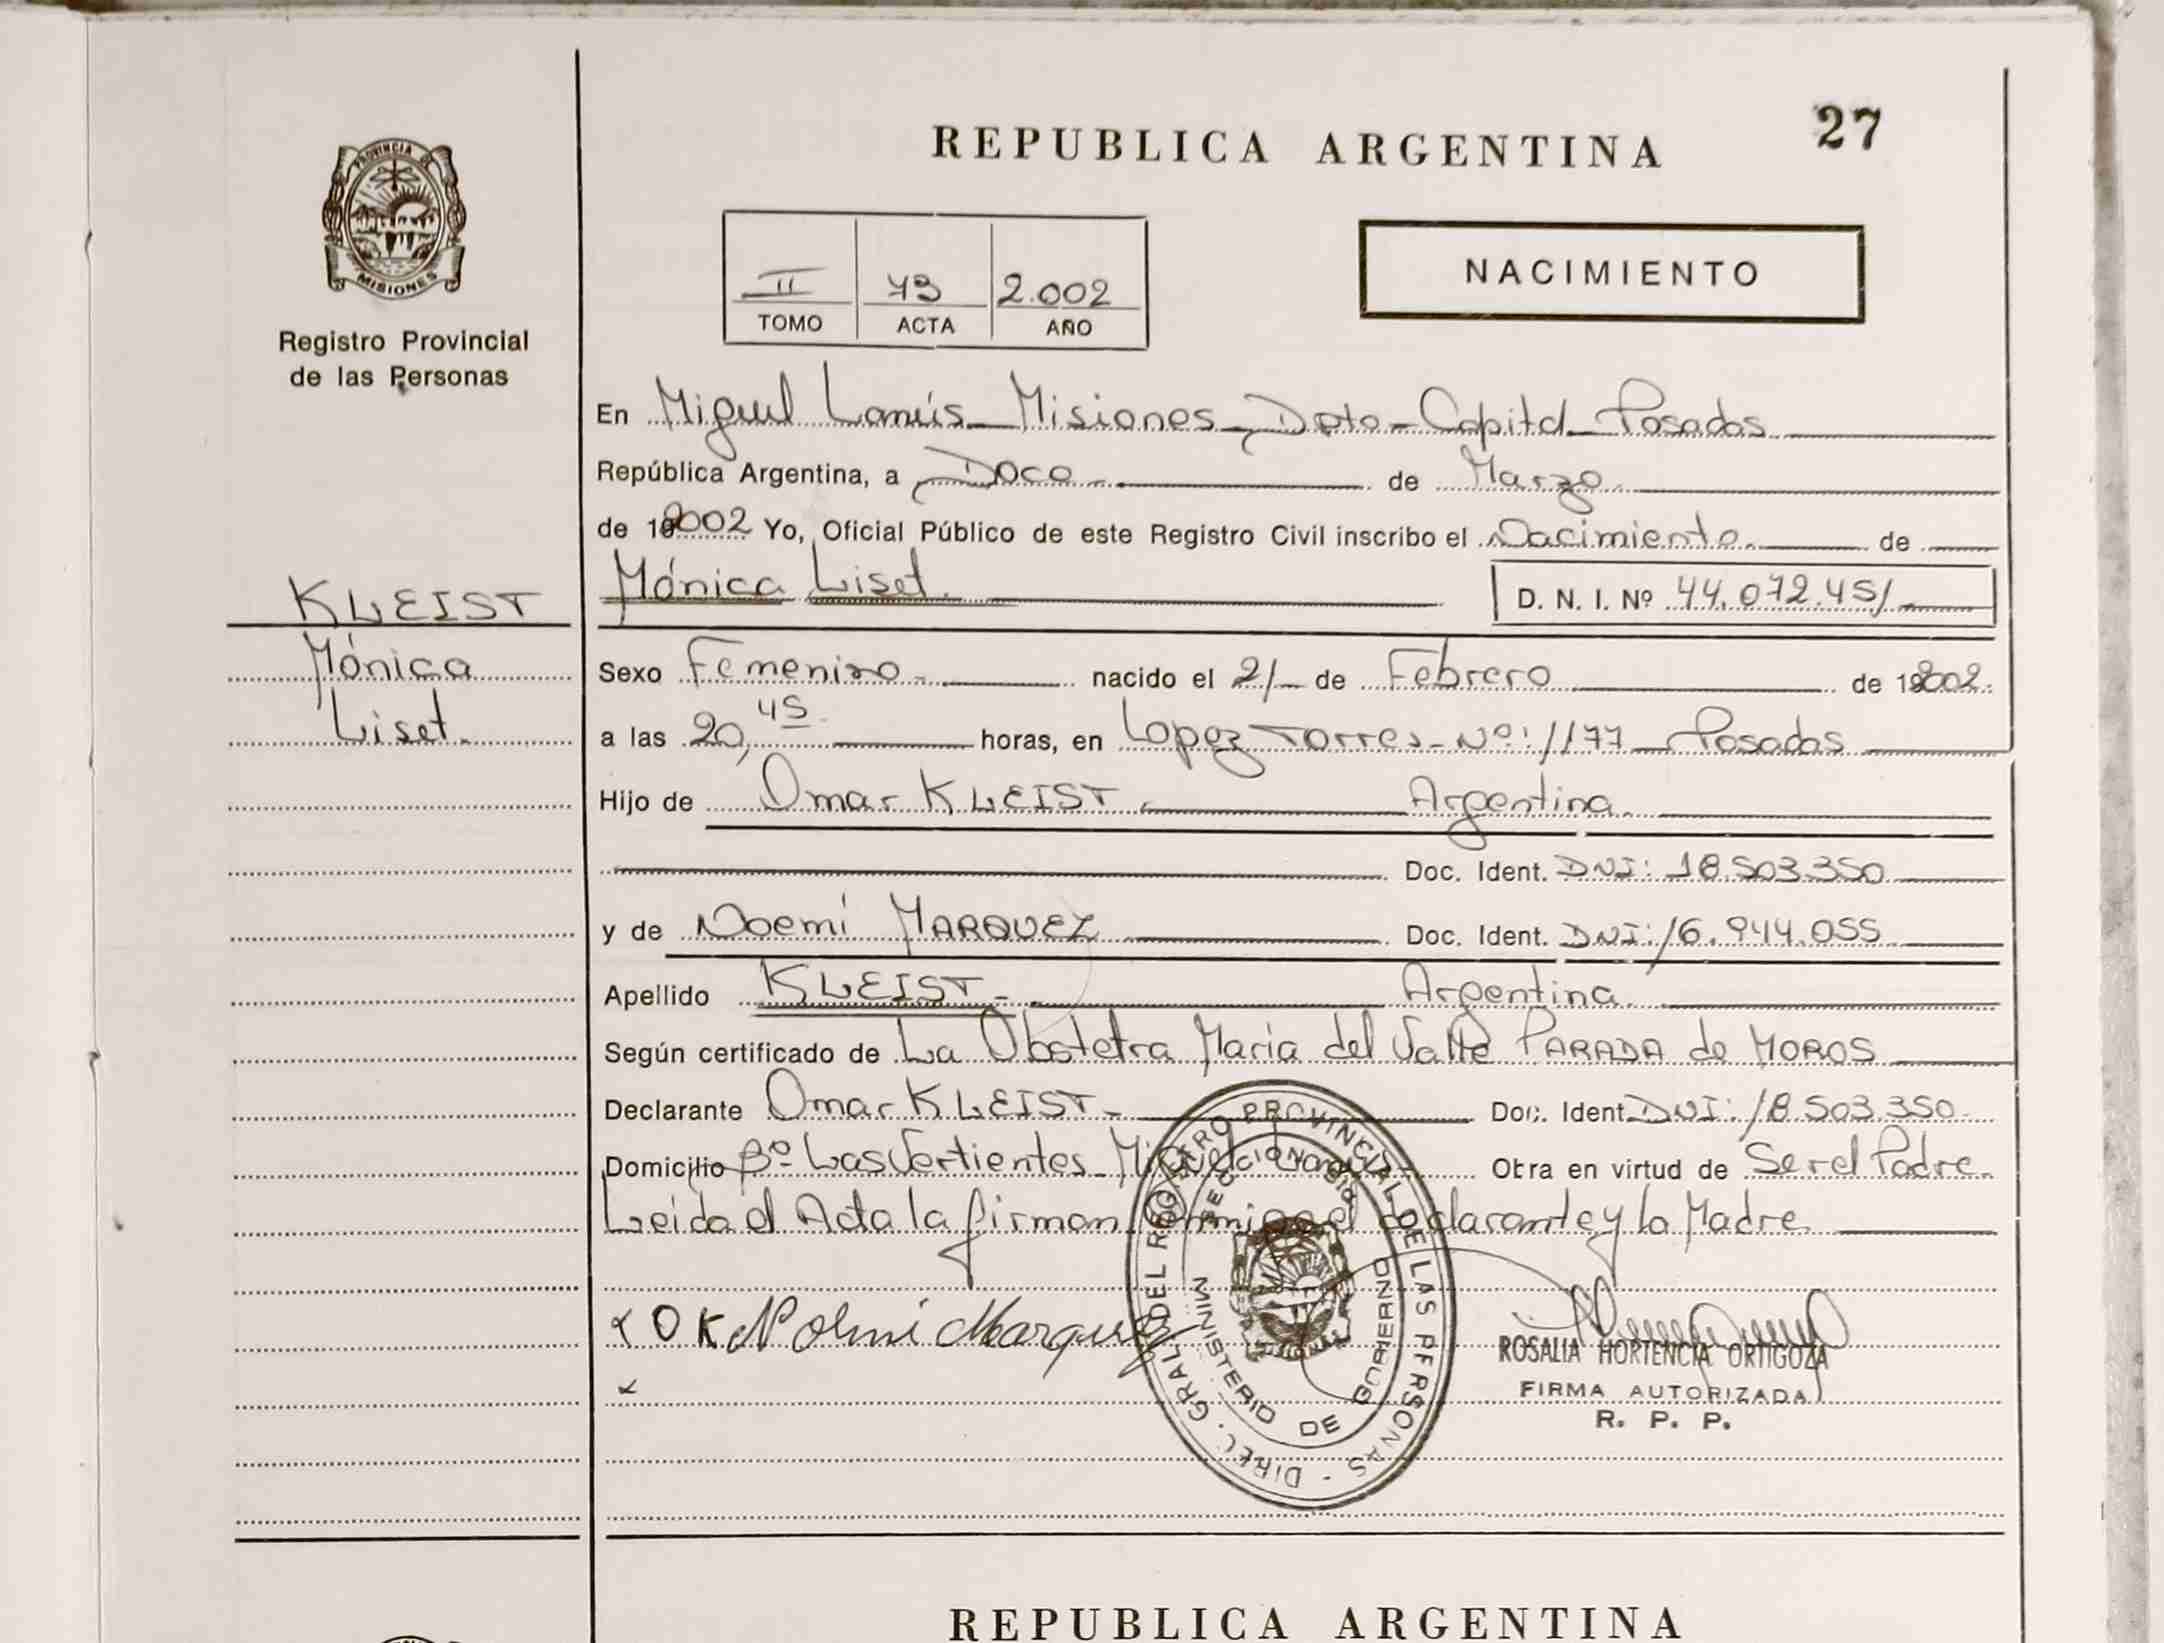 REPUBLICA ARGENTINA
27
PROVINCIA DE
MISIONES
Registro Provincial
de las Personas
II 2.002
TOMO ACTA AÑO
NACIMIENTO
En Miguel Lanús - Misiones - Dpto - Capital - Posadas
República Argentina, a Doce de Marzo
de 2002 Yo, Oficial Público de este Registro Civil inscribo el Nacimiento de
Mónica Liset D. N. I. Nº 44.072.451
KLEIST
Mónica
Liset
Sexo Femenino nacido el 21 de Febrero de 2002
a las 20,45 horas, en Lopez Torres - Nº: 1177 - Posadas
Hijo de Omar KLEIST Argentina
Doc. Ident. DNI: 18.503.350
y de Noemí MARQUEZ Doc. Ident. DNI: 16.944.055
Apellido KLEIST Argentina
Según certificado de La Obstetra Maria del Valle PARADA de MOROS
Declarante Omar KLEIST Doc. Ident. DNI: 18.503.350
Domicilio Bº Las Vertientes - Miguel Lanús Obra en virtud de Ser el Padre
Leida el Acta la firman conmigo el declarante y la Madre
O K Noemi Marquez
DIREC. GRAL. DEL REGISTRO PROVINCIAL DE LAS PERSONAS
MINISTERIO DE GOBIERNO
ROSALIA HORTENCIA ORTIGOZA
FIRMA AUTORIZADA
R. P. P.
REPUBLICA ARGENTINA